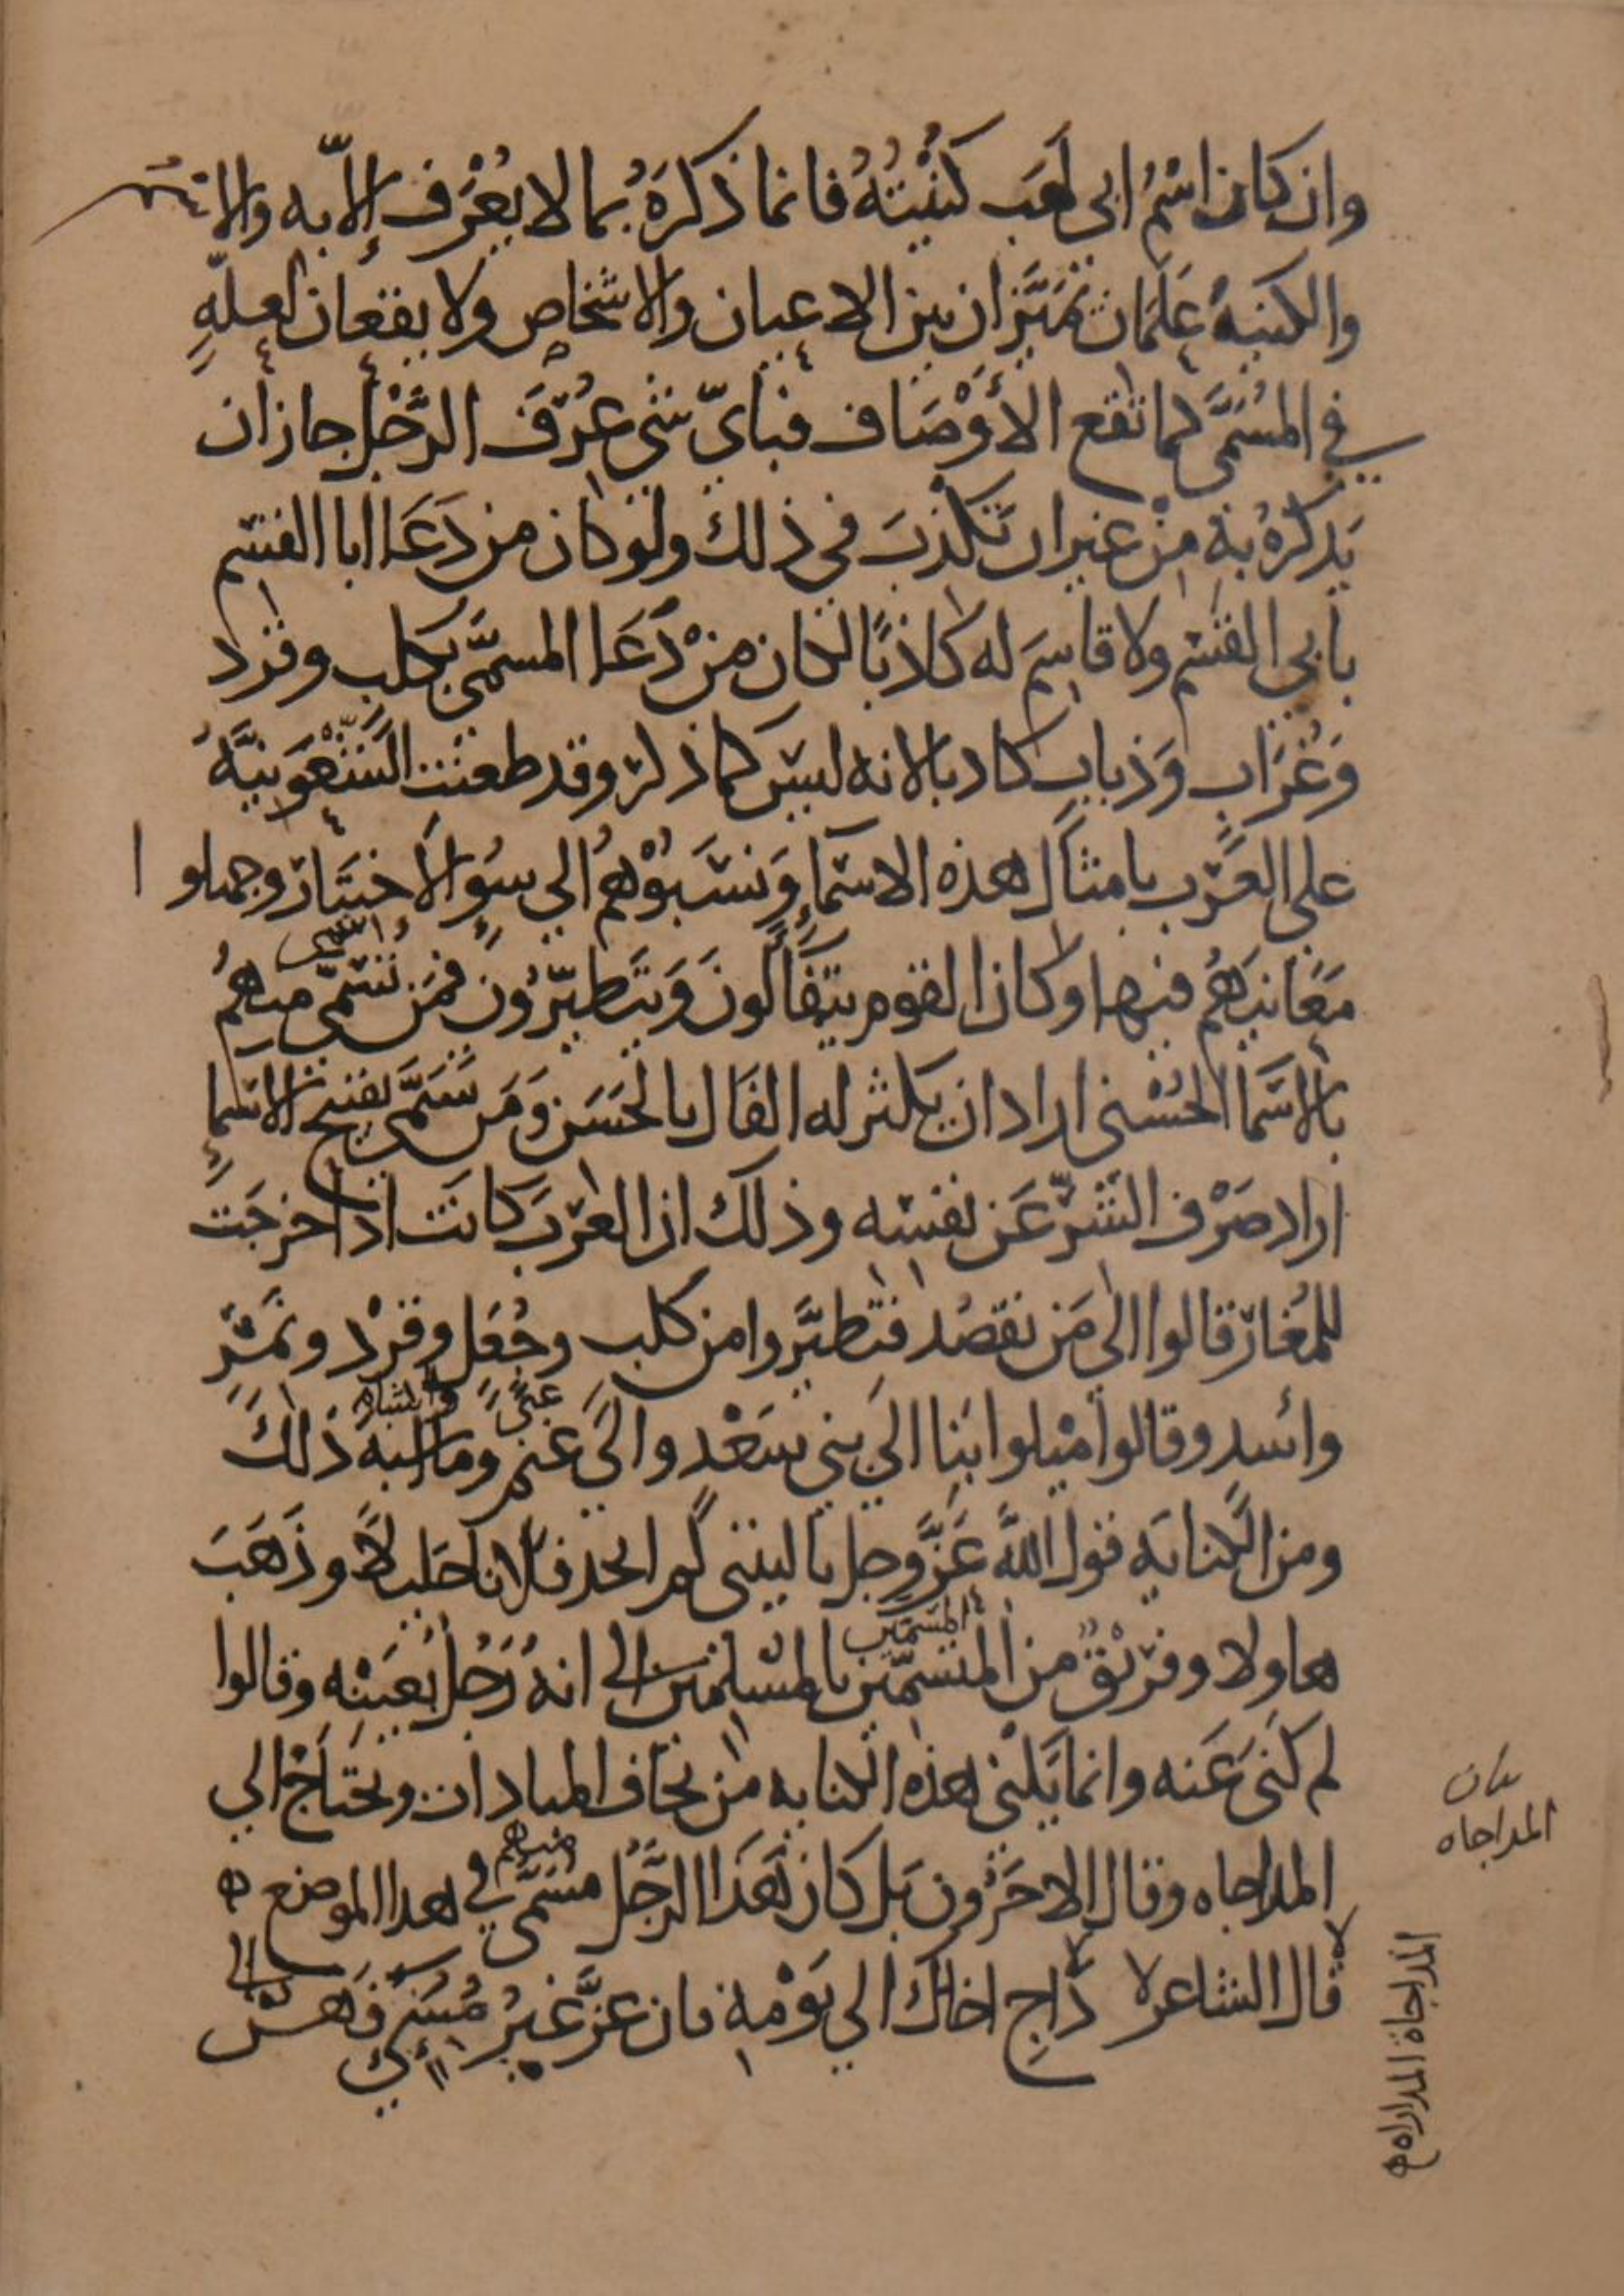 وان كان اسْمُ ابي لَهَب كُنْيَتُهُ فانما ذكرَهُ بما لا يُعْرَف إلاّ به والاسم
والكنيهُ عَلَمَان تُمَيّزان بين الاعيان والاشخاص ولا يقعان لعلّهٍ
في المُسَمَّى كما تقع الأَوْصَاف فبايّ شي عُرِفَ الرَّجُل جاز ان
يَذكرهُ به مِنْ غير ان تَكْذبَ في ذلك ولو كان من دَعَا ابا القسم
بابي القسم ولا قاسِمَ له كاذبًا لكان مَنْ دَعَا المسمّى بكلب وقرد
وَغُرَاب وَذباب كاذبا لانه ليس كما ذكر وقد طعنت الشُّعُوبيَّهُ
على العَرَب بامثَال هذه الاسَمآءِ وَنسَبُوْهُم الى سُوءِ الأختيَار وجهلوا
مَعَانيَهُم فيها وكان القوم يتفَالُونَ وَيَتَطيّرُون فمَن تسمّى منهُم
بالاسَمَا الحُسْنى اراد ان يكثر له الفَال بالحَسَن وَمَن تسَمَّى بقبيح الاسماءِ
اراد صَرْف الشَّرِّ عَن نفسه وذلك ان العَرَب كانَت اذا خرجَت
للمُغَار قالوا الى مَن نقصُد فتطيَّروا من كلب وجُعَل وقرْد ونَمِر
واسد وقالوا مْيلوا بنا الى بني سَعْد والَى غنم وما اشبه ذَلكَ
غني
ومن الكنايَه قول اللهَّ عَزَّ وجل يا ليتنى لم اتخذ فلانا خليلاً وذَهَبَ
هاولا وفريْقٌ من المتسَمّين بالمسْلمين الى انهُ رَجُل بعَيْنِه وقالوا
المسمّين
لم كَنَى عَنه وانما يَكْنى هذه الكنايه من يخاف المباداه ويحتاج الي
المداجاه وقال الاخَرُون بل كان هَذا الرَّجُل مسَمَّى في هذا الموضع ه
قال الشاعر دَاجِ اخاك الي يَوْمهِ فان عزّ غيرُ مُسِىءٍ فَهُنْ
بيان
المداجاه
المداجاة المداراه